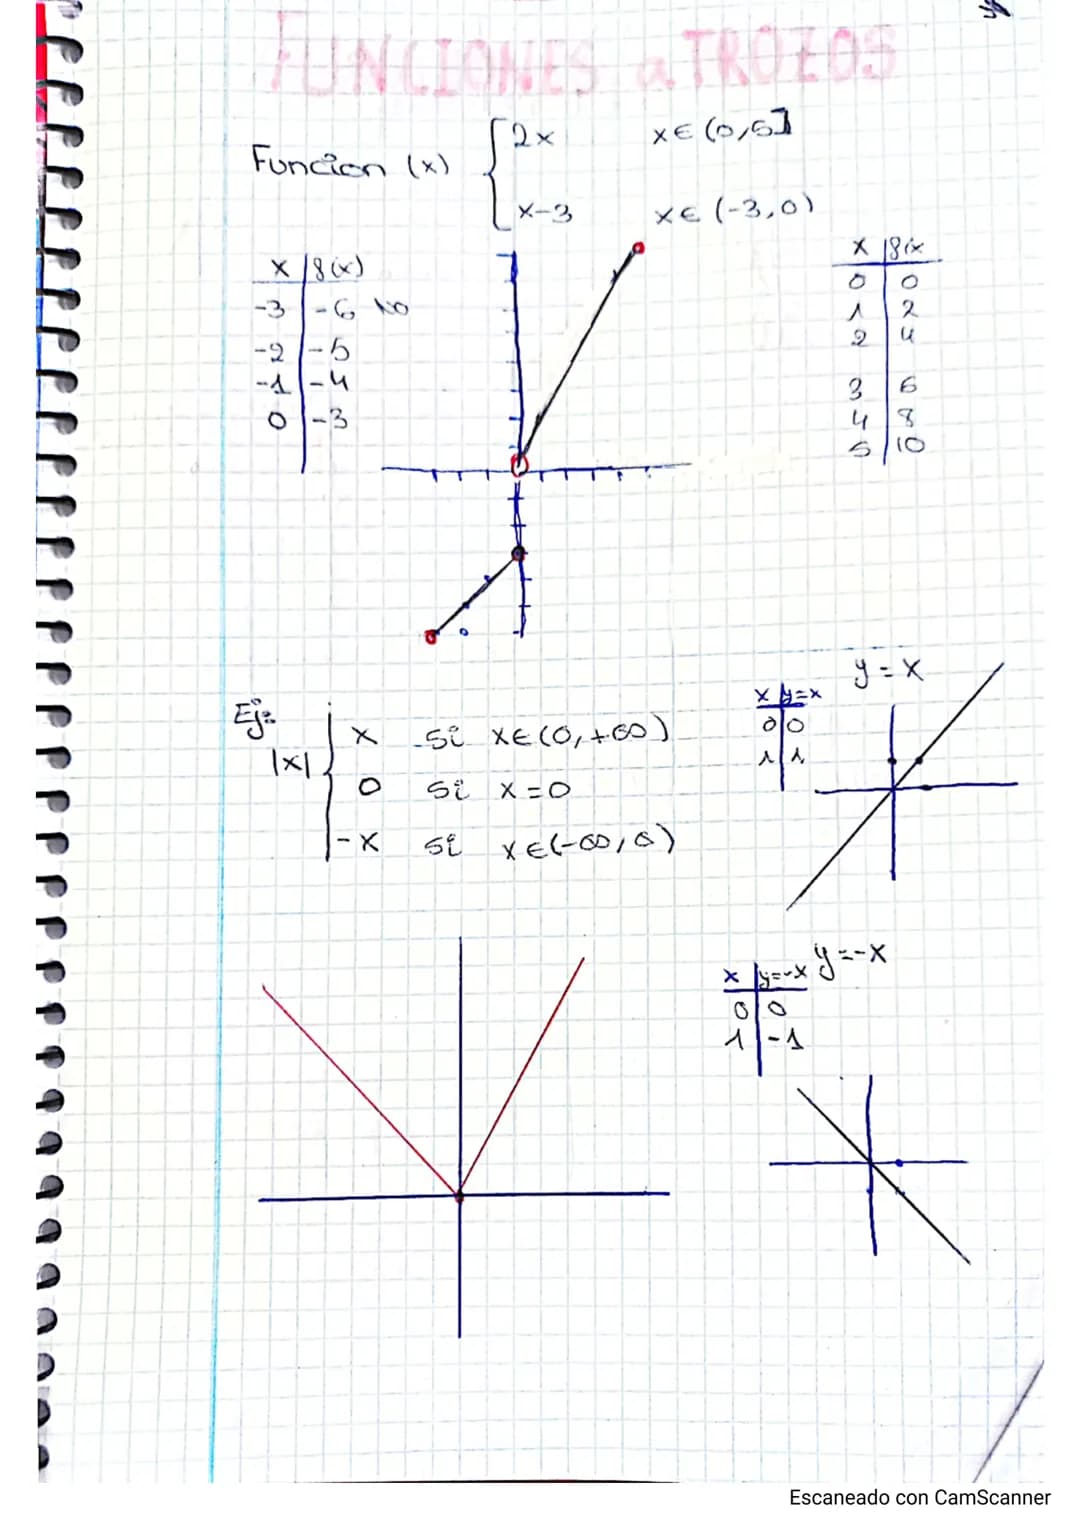 FUNCIONES a TROZOS
Funcion (x) { 2x x∈(0,5]
x-3 x∈(-3,0)
x | f(x)
-3 | -6 NO
-2 | -5
-1 | -4
0 | -3
x | f(x
0 | 0
1 | 2
2 | 4
3 | 6
4 | 8
5 | 10
Ej:
|x| { x si x∈(0,+∞)
0 si x=0
-x si x∈(-∞,0)
y=x
x | y=x
0 | 0
1 | 1
y=-x
x | y=-x
0 | 0
1 | -1
Escaneado con CamScanner